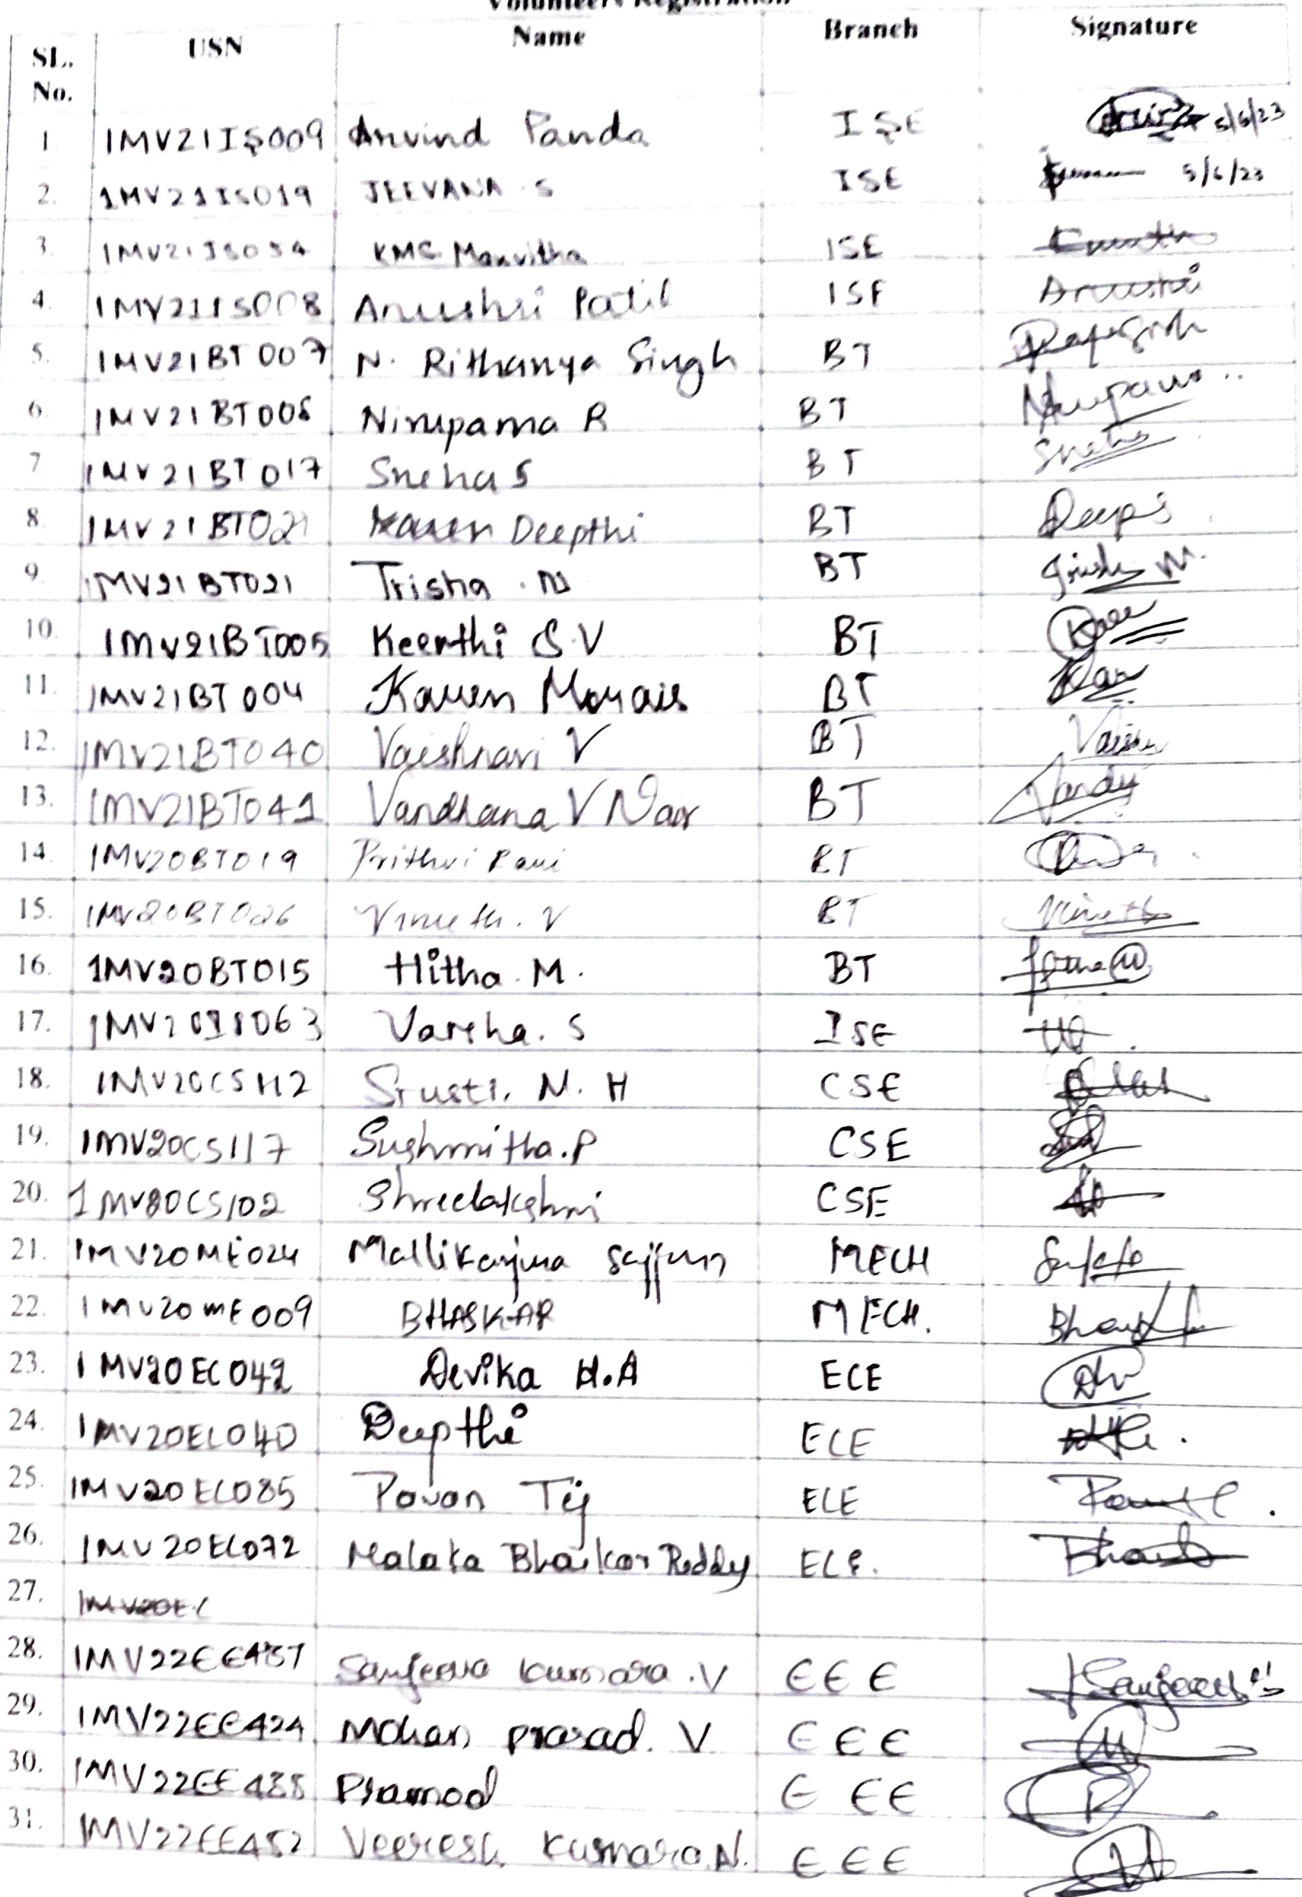 Volunteers Registration
SL. No. USN Name Branch Signature
1. 1MV21IS009 Arvind Panda ISE 5/6/23
2. 1MV21IS019 JEEVANA S ISE 5/6/23
3. 1MV21IS054 KMC Manvitha ISE
4. 1MV21IS008 Anushri Patil ISE Anushri
5. 1MV21BT007 N. Rithanya Singh BT
6. 1MV21BT006 Nirupama R BT Nirupama
7. 1MV21BT017 Sneha S BT Sneha
8. 1MV21BT021 Deepthi BT
9. 1MV21BT021 Trisha . N BT
10. 1MV21BT005 Keerthi S V BT
11. 1MV21BT004 Karen Morais BT
12. 1MV21BT040 Vaishnavi V BT
13. 1MV21BT041 Vandhana V Nair BT Vandy
14. 1MV20BT019 Prithvi BT
15. 1MV20BT026 Vineeth. V BT Vineeth
16. 1MV20BT015 Hitha M. BT
17. 1MV20IS063 Varsha. S ISE
18. 1MV20CS112 Srusti. N. H CSE
19. 1MV20CS117 Sushmitha.P CSE
20. 1MV20CS102 Shreelakshmi CSE
21. 1MV20ME024 Mallikarjuna Sajjan MECH
22. 1MV20ME009 BHASKAR MECH.
23. 1MV20EC042 Devika H.A ECE
24. 1MV20EC040 Deepthi ECE
25. 1MV20EC085 Pavan Tej ECE
26. 1MV20EC072 Malaka Bhaskar Reddy ECE.
27. 1MV20EC
28. 1MV22EE437 Sanjeeva Kumara .V EEE
29. 1MV22EE424 Mohan prasad. V EEE
30. 1MV22EE438 Pramod EEE
31. 1MV22EE452 Veeresh Kumara.N. EEE